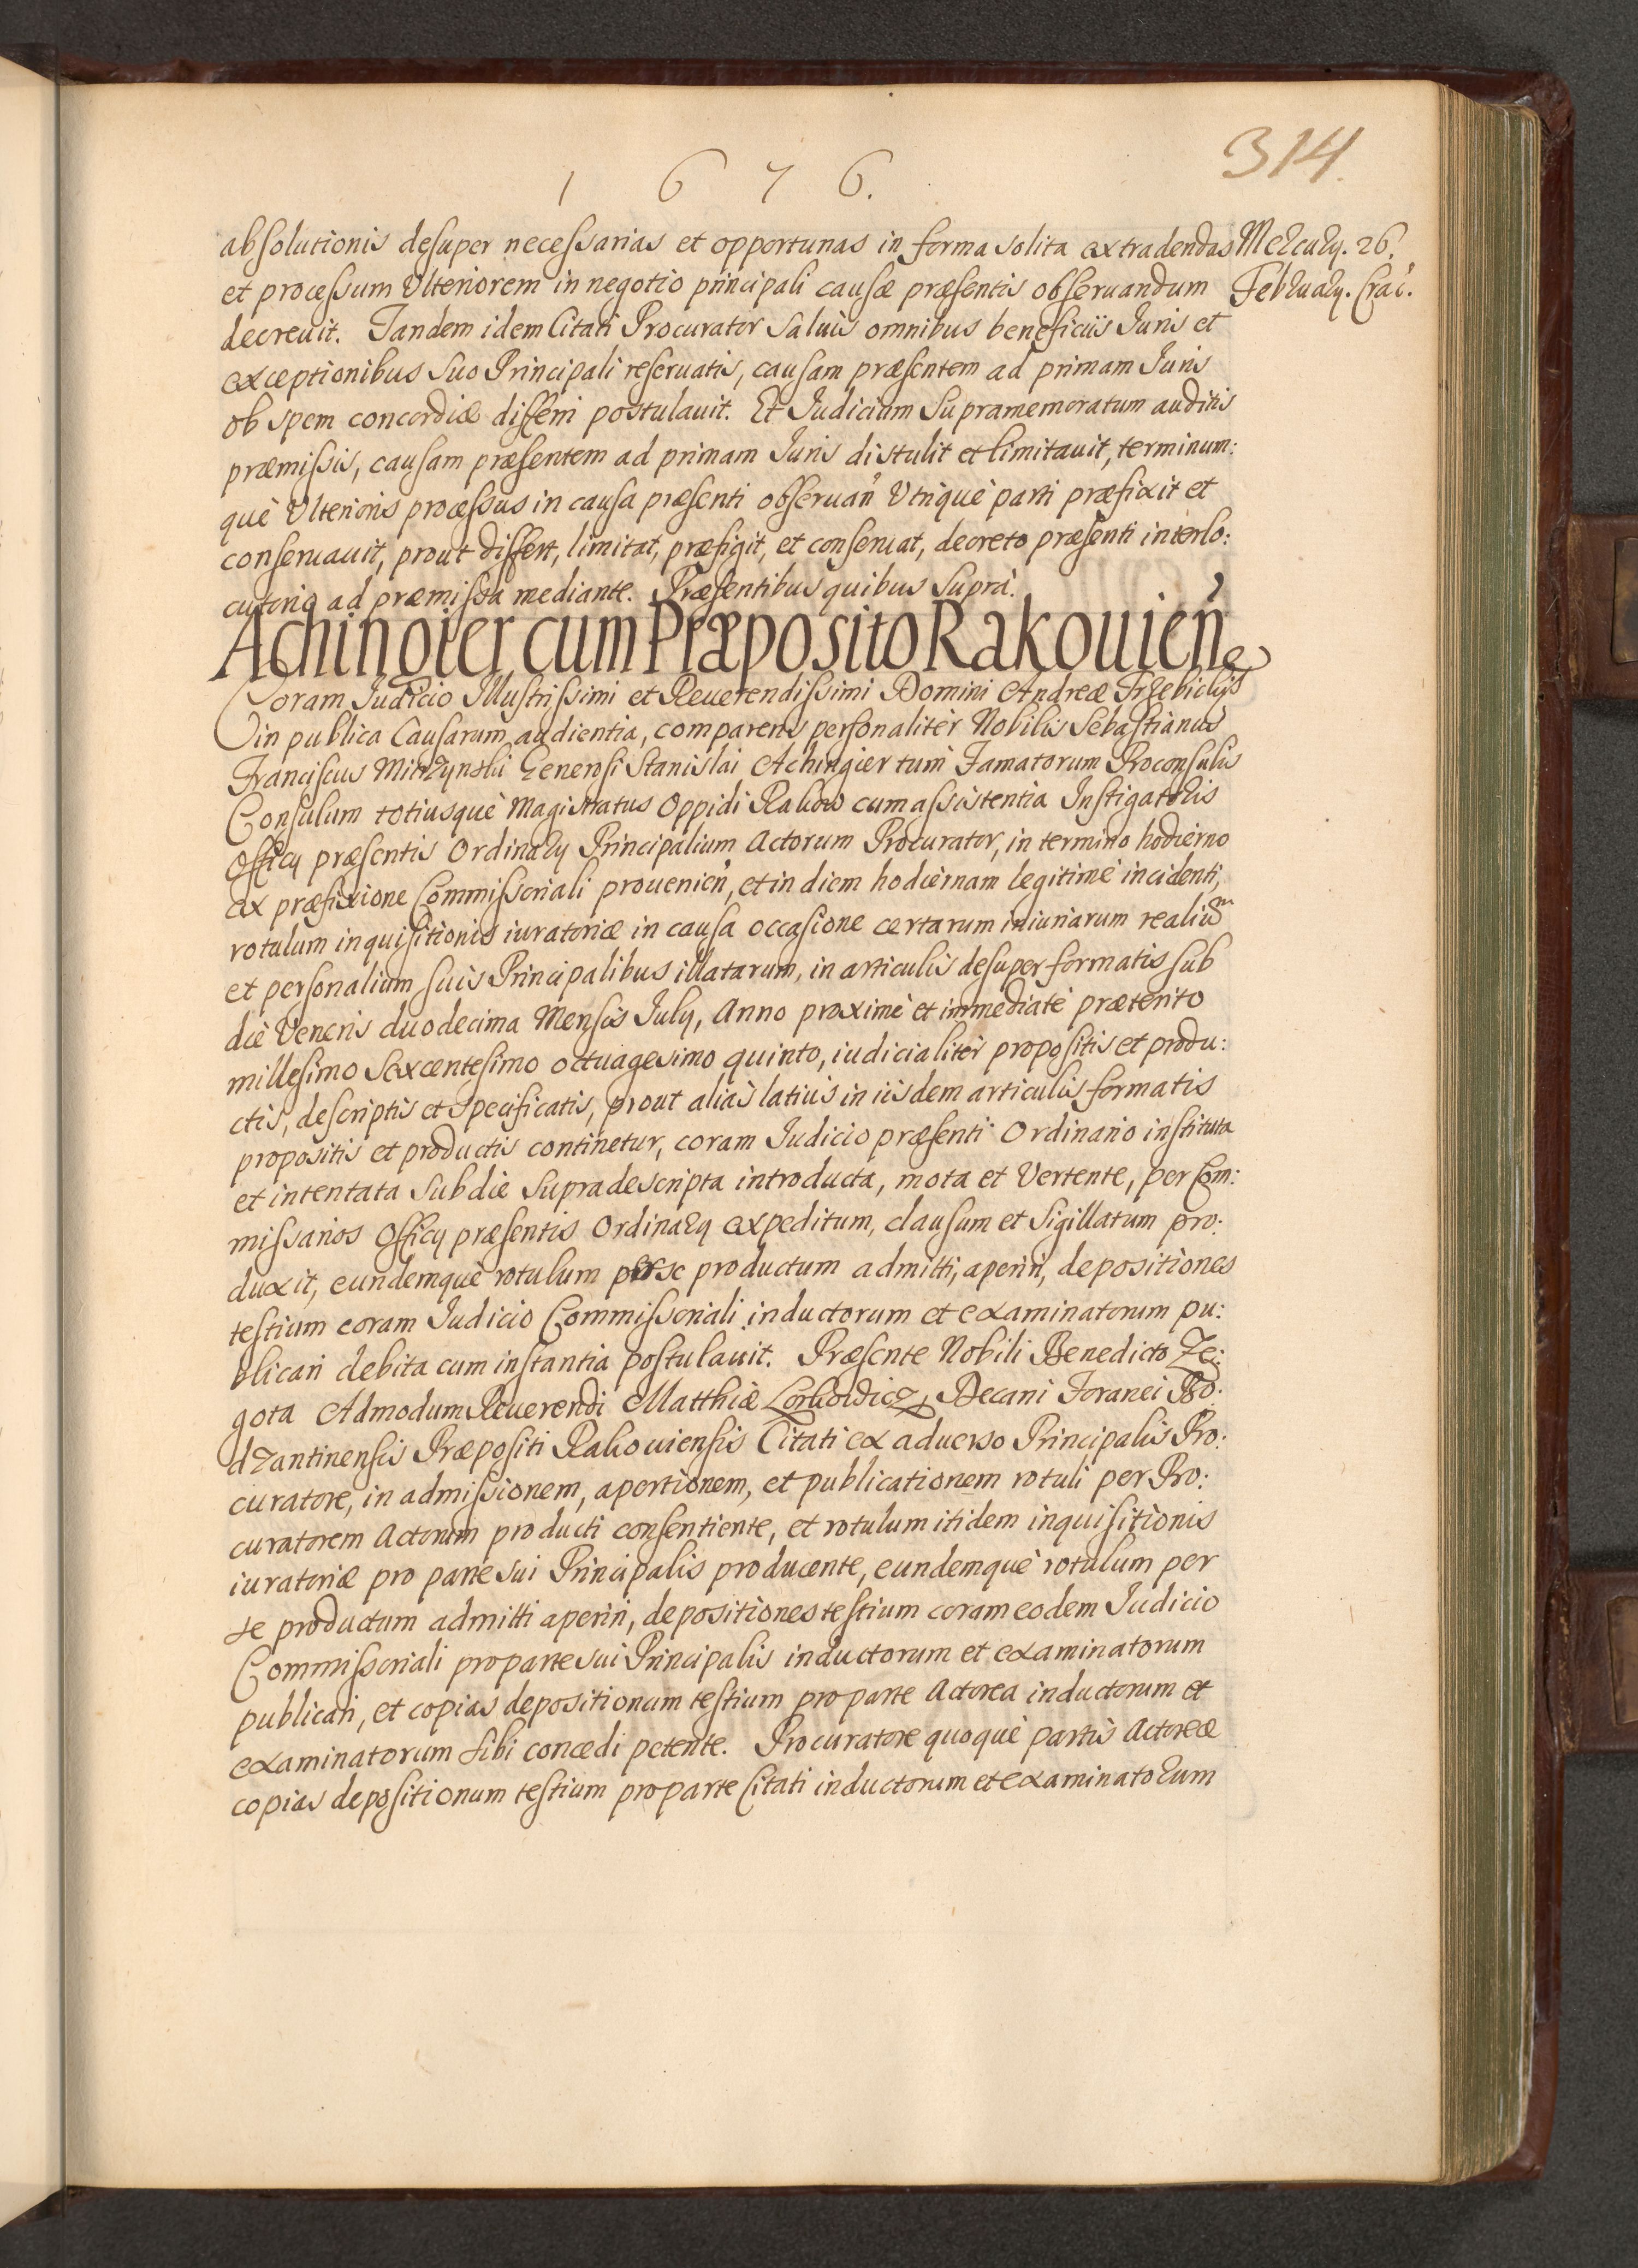 314.
1 6 7 6.
absolutionis desuper necessarias et opportunas in forma solita extradendas Mercurÿ. 26.
et processum Ulteriorem in negotio principali causæ præsentis obseruandum Februarÿ. Crac.
decreuit. Tandem idem Citati Procurator Saluis omnibus beneficiis Juris et
exceptionibus suo Principali reseruatis, causam præsentem ad primam Juris
ob spem concordiæ differri postulauit. Et Judicium Supramemoratum auditis
præmissis, causam præsentem ad primam Juris distulit et limitauit, terminum:
què Ulterioris processus in causa præsenti obseruan̄ Utriquè parti præfixit et
conseruauit, prout differt, limitat, præfigit, et conseruat, decreto præsenti interlo:
cutorio ad præmissa mediante. Præsentibus quibus Suprà.
Achingier cum Præposito Rakouien̄
Coram Judicio Illustrissimi et Reuerendissimi Domini Andreæ Trzebickÿ
in publica Causarum audientia, comparens personalitèr Nobilis Sebastianus
Franciscus Generosi Stanislai Achingier tum Famatorum Proconsulis
Consulum totiusquè Magistratus Oppidi Rakow cum assistentia Instigatoris
Officÿ præsentis Ordinarÿ Principalium Actorum Procurator, in termino hodierno
ex præfixione Commissoriali prouenien̄, et in diem hodiernam legitimè incidenti,
rotulum inquisitionis iuratoriæ in causa occasione certarum iniuriarum realiū
et personalium suis Principalibus illatarum, in articulis desuper formatis sub
die Veneris duodecima Mensis Julÿ, Anno proximè et immediatè præterito
millesimo sexcentesimo octuagesimo quinto, iudicialitèr propositis et produ:
ctis, descriptis et specificatis, prout aliàs latius in iisdem articulis formatis
propositis et productis continetur, coram Judicio præsenti Ordinario instituta
et intentata sub die supradescripta introducta, mota et Vertente, per Com:
missarios Officÿ præsentis Ordinarÿ expeditum, clausum et Sigillatum pro:
duxit, eundemquè rotulum per se productum admitti, aperiri, depositiones
testium coram Judicio Commissoriali inductorum et examinatorum pu:
blicari debita cum instantia postulauit. Præsente Nobili Benedicto Ze:
gota Admodum Reuerendi Matthiæ Decani Foranei Bo:
dzantinensis Præpositi Rakouiensis Citati ex aduerso Principalis Pro:
curatore, in admissionem, apertionem, et publicationem rotuli per Pro:
curatorem Actorum producti consentiente, et rotulum itidem inquisitionis
iuratoriæ pro parte sui Principalis producente, eundemquè rotulum per
se productum admitti aperiri, depositiones testium coram eodem Judicio
Commissoriali pro parte sui Principalis inductorum et examinatorum
publicari, et copias depositionum testium pro parte Actorea inductorum et
examinatorum sibi concedi petente. Procuratore quoquè partis Actoreæ
copias depositionum testium pro parte Citati inductorum et examinatorum